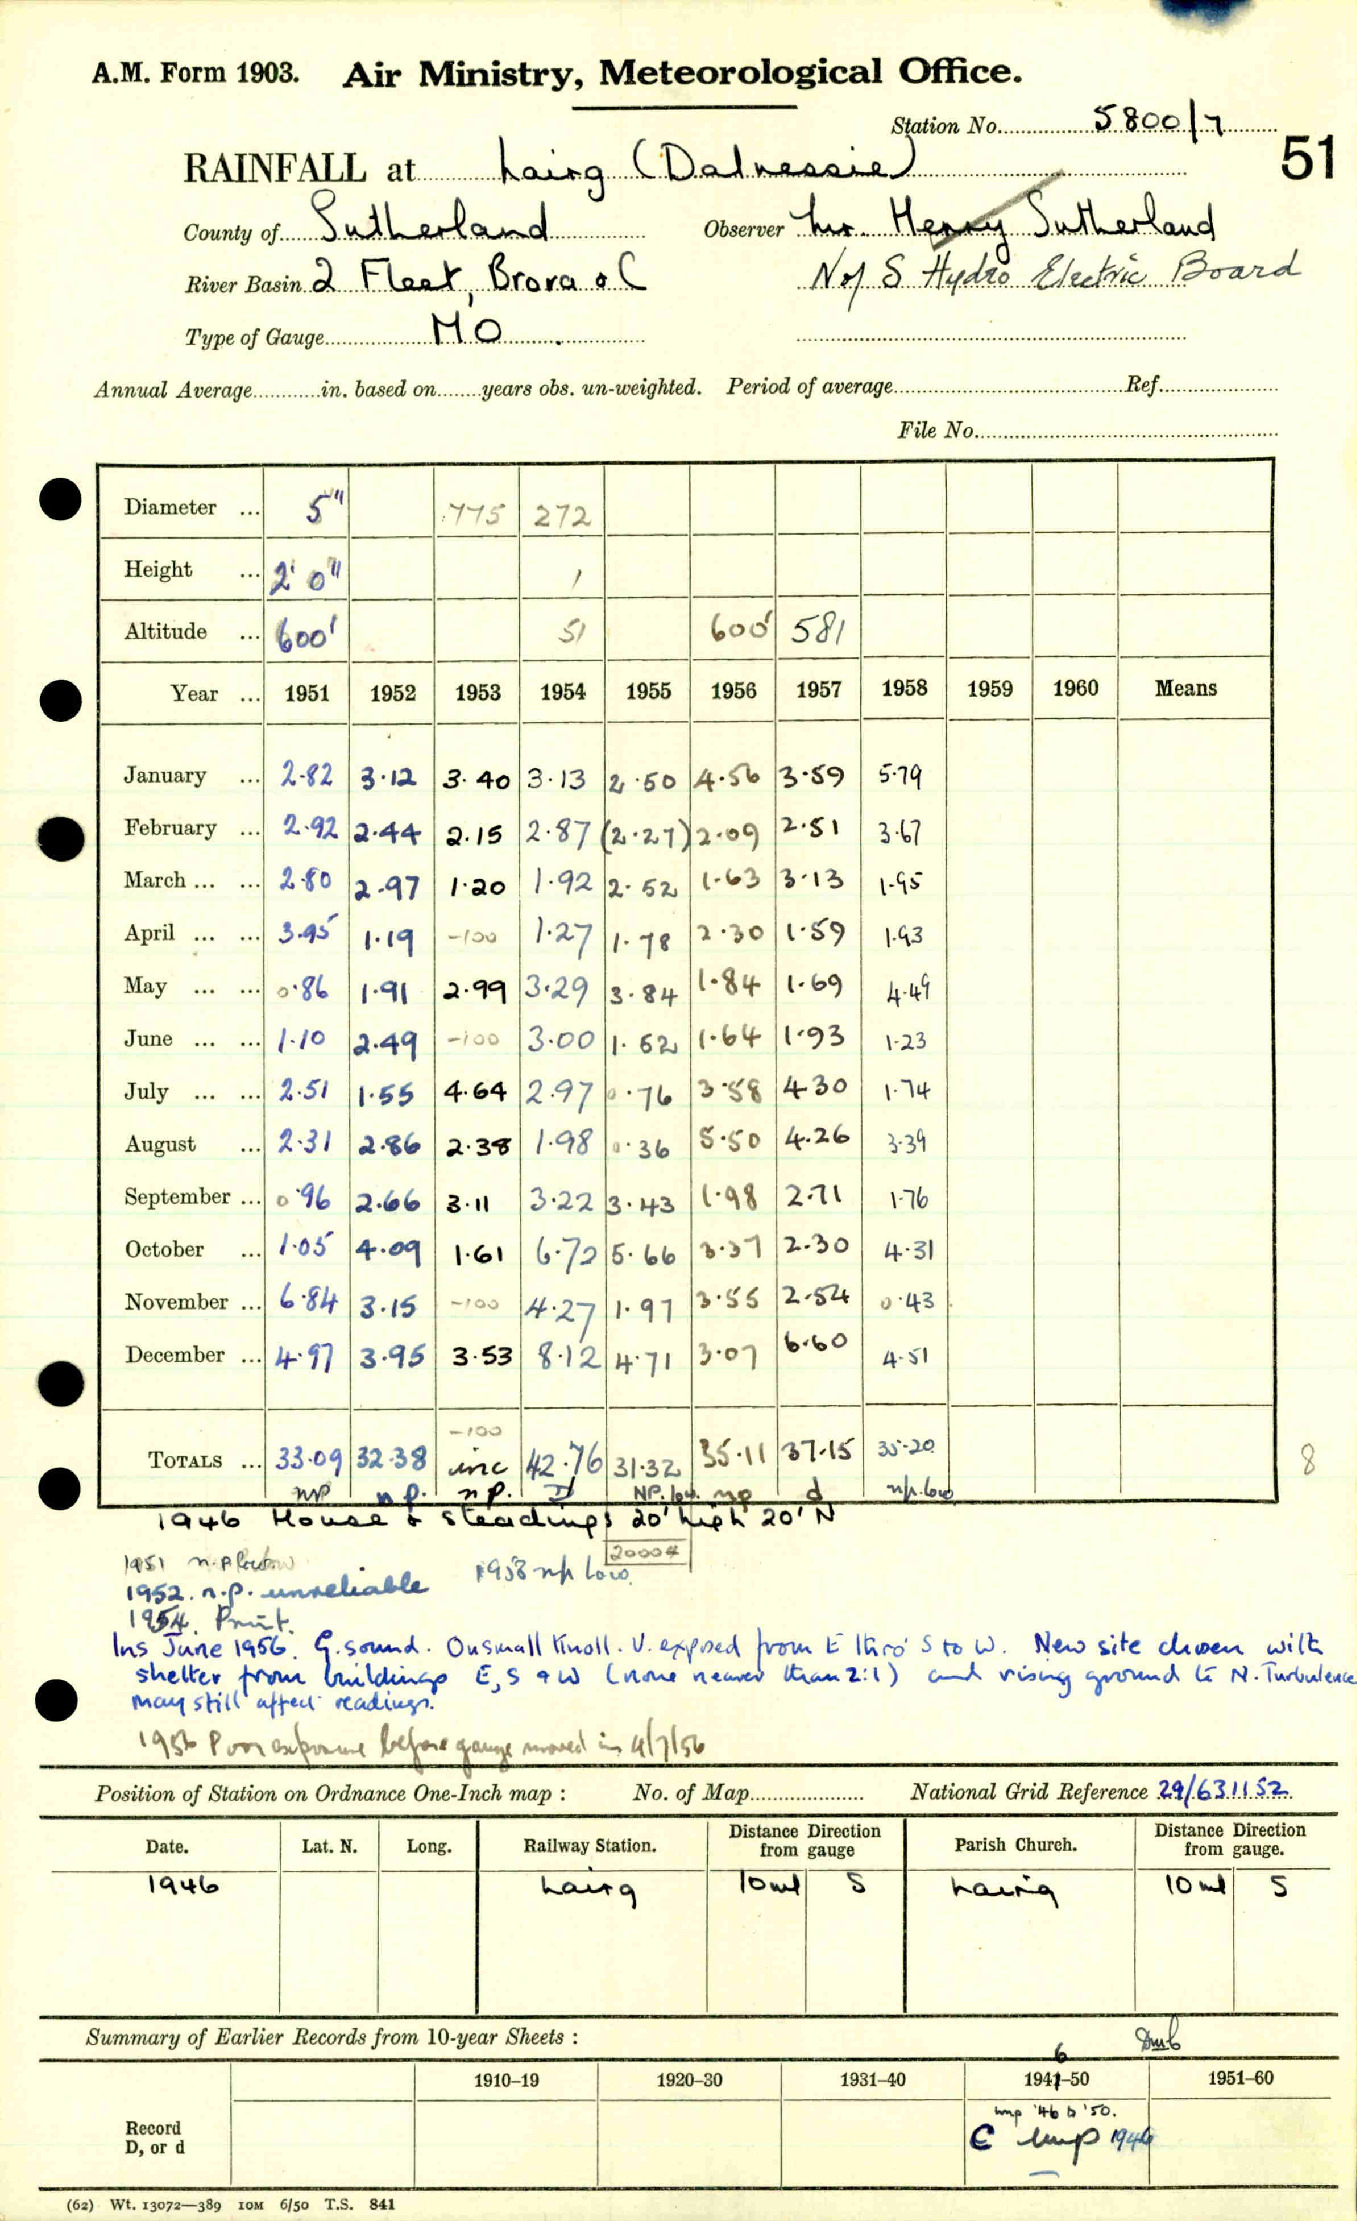 A.M. Form 1903. Air Ministry, Meteorological Office.
Station No. 5800/7
51
RAINFALL at Lairg (Dalnessie)
County of Sutherland Observer Mr. Henry Sutherland
River Basin 2 Fleet, Brora & C N of S Hydro Electric Board
Type of Gauge MO
Annual Average in. based on years obs. un-weighted. Period of average Ref.
File No.
Diameter ... 5" 775 272
Height ... 2' 0" 1
Altitude ... 600' 51 600' 581
Year ... 1951 1952 1953 1954 1955 1956 1957 1958 1959 1960 Means
January ... 2.82 3.12 3.40 3.13 2.50 4.56 3.59 5.79
February ... 2.92 2.44 2.15 2.87 (2.27) 2.09 2.51 3.67
March ... ... 2.80 2.97 1.20 1.92 2.52 1.63 3.13 1.95
April ... ... 3.95 1.19 -100 1.27 1.78 2.30 1.59 1.93
May ... ... 0.86 1.91 2.99 3.29 3.84 1.84 1.69 4.49
June ... ... 1.10 2.49 -100 3.00 1.52 1.64 1.93 1.23
July ... ... 2.51 1.55 4.64 2.97 0.76 3.58 4.30 1.74
August ... 2.31 2.86 2.38 1.98 0.36 5.50 4.26 3.39
September ... 0.96 2.66 3.11 3.22 3.43 1.98 2.71 1.76
October ... 1.05 4.09 1.61 6.72 5.66 3.37 2.30 4.31
November ... 6.84 3.15 -100 4.27 1.97 3.55 2.54 0.43
December ... 4.97 3.95 3.53 8.12 4.71 3.07 6.60 4.51
-100
TOTALS ... 33.09 32.38 inc 42.76 31.32 35.11 37.15 35.20 8
np n.p. n.p. D NP. low np d np. low
1946 House & Steadings 20' high 20' N
20004
1951 n.p low 1958 np low.
1952. n.p. unreliable
1954. Print.
Ins June 1956. G. sound. On small knoll. V. exposed from E thro' S to W. New site chosen with
shelter from buildings E, S & W (none nearer than 2:1) and rising ground to N. Turbulence
may still affect readings.
1956 Poor exposure before gauge moved in 4/7/56
Position of Station on Ordnance One-Inch map : No. of Map National Grid Reference 29/631152
Date. Lat. N. Long. Railway Station. Distance from Direction gauge Parish Church. Distance from Direction gauge.
1946 Lairg 10ml S Lairg 10ml S
Summary of Earlier Records from 10-year Sheets :
6
1910–19 1920–30 1931–40 1941–50 1951–60
Record D, or d
np '46 to '50.
C 1946
(62) Wt. 13072—389 10M 6/50 T.S. 841